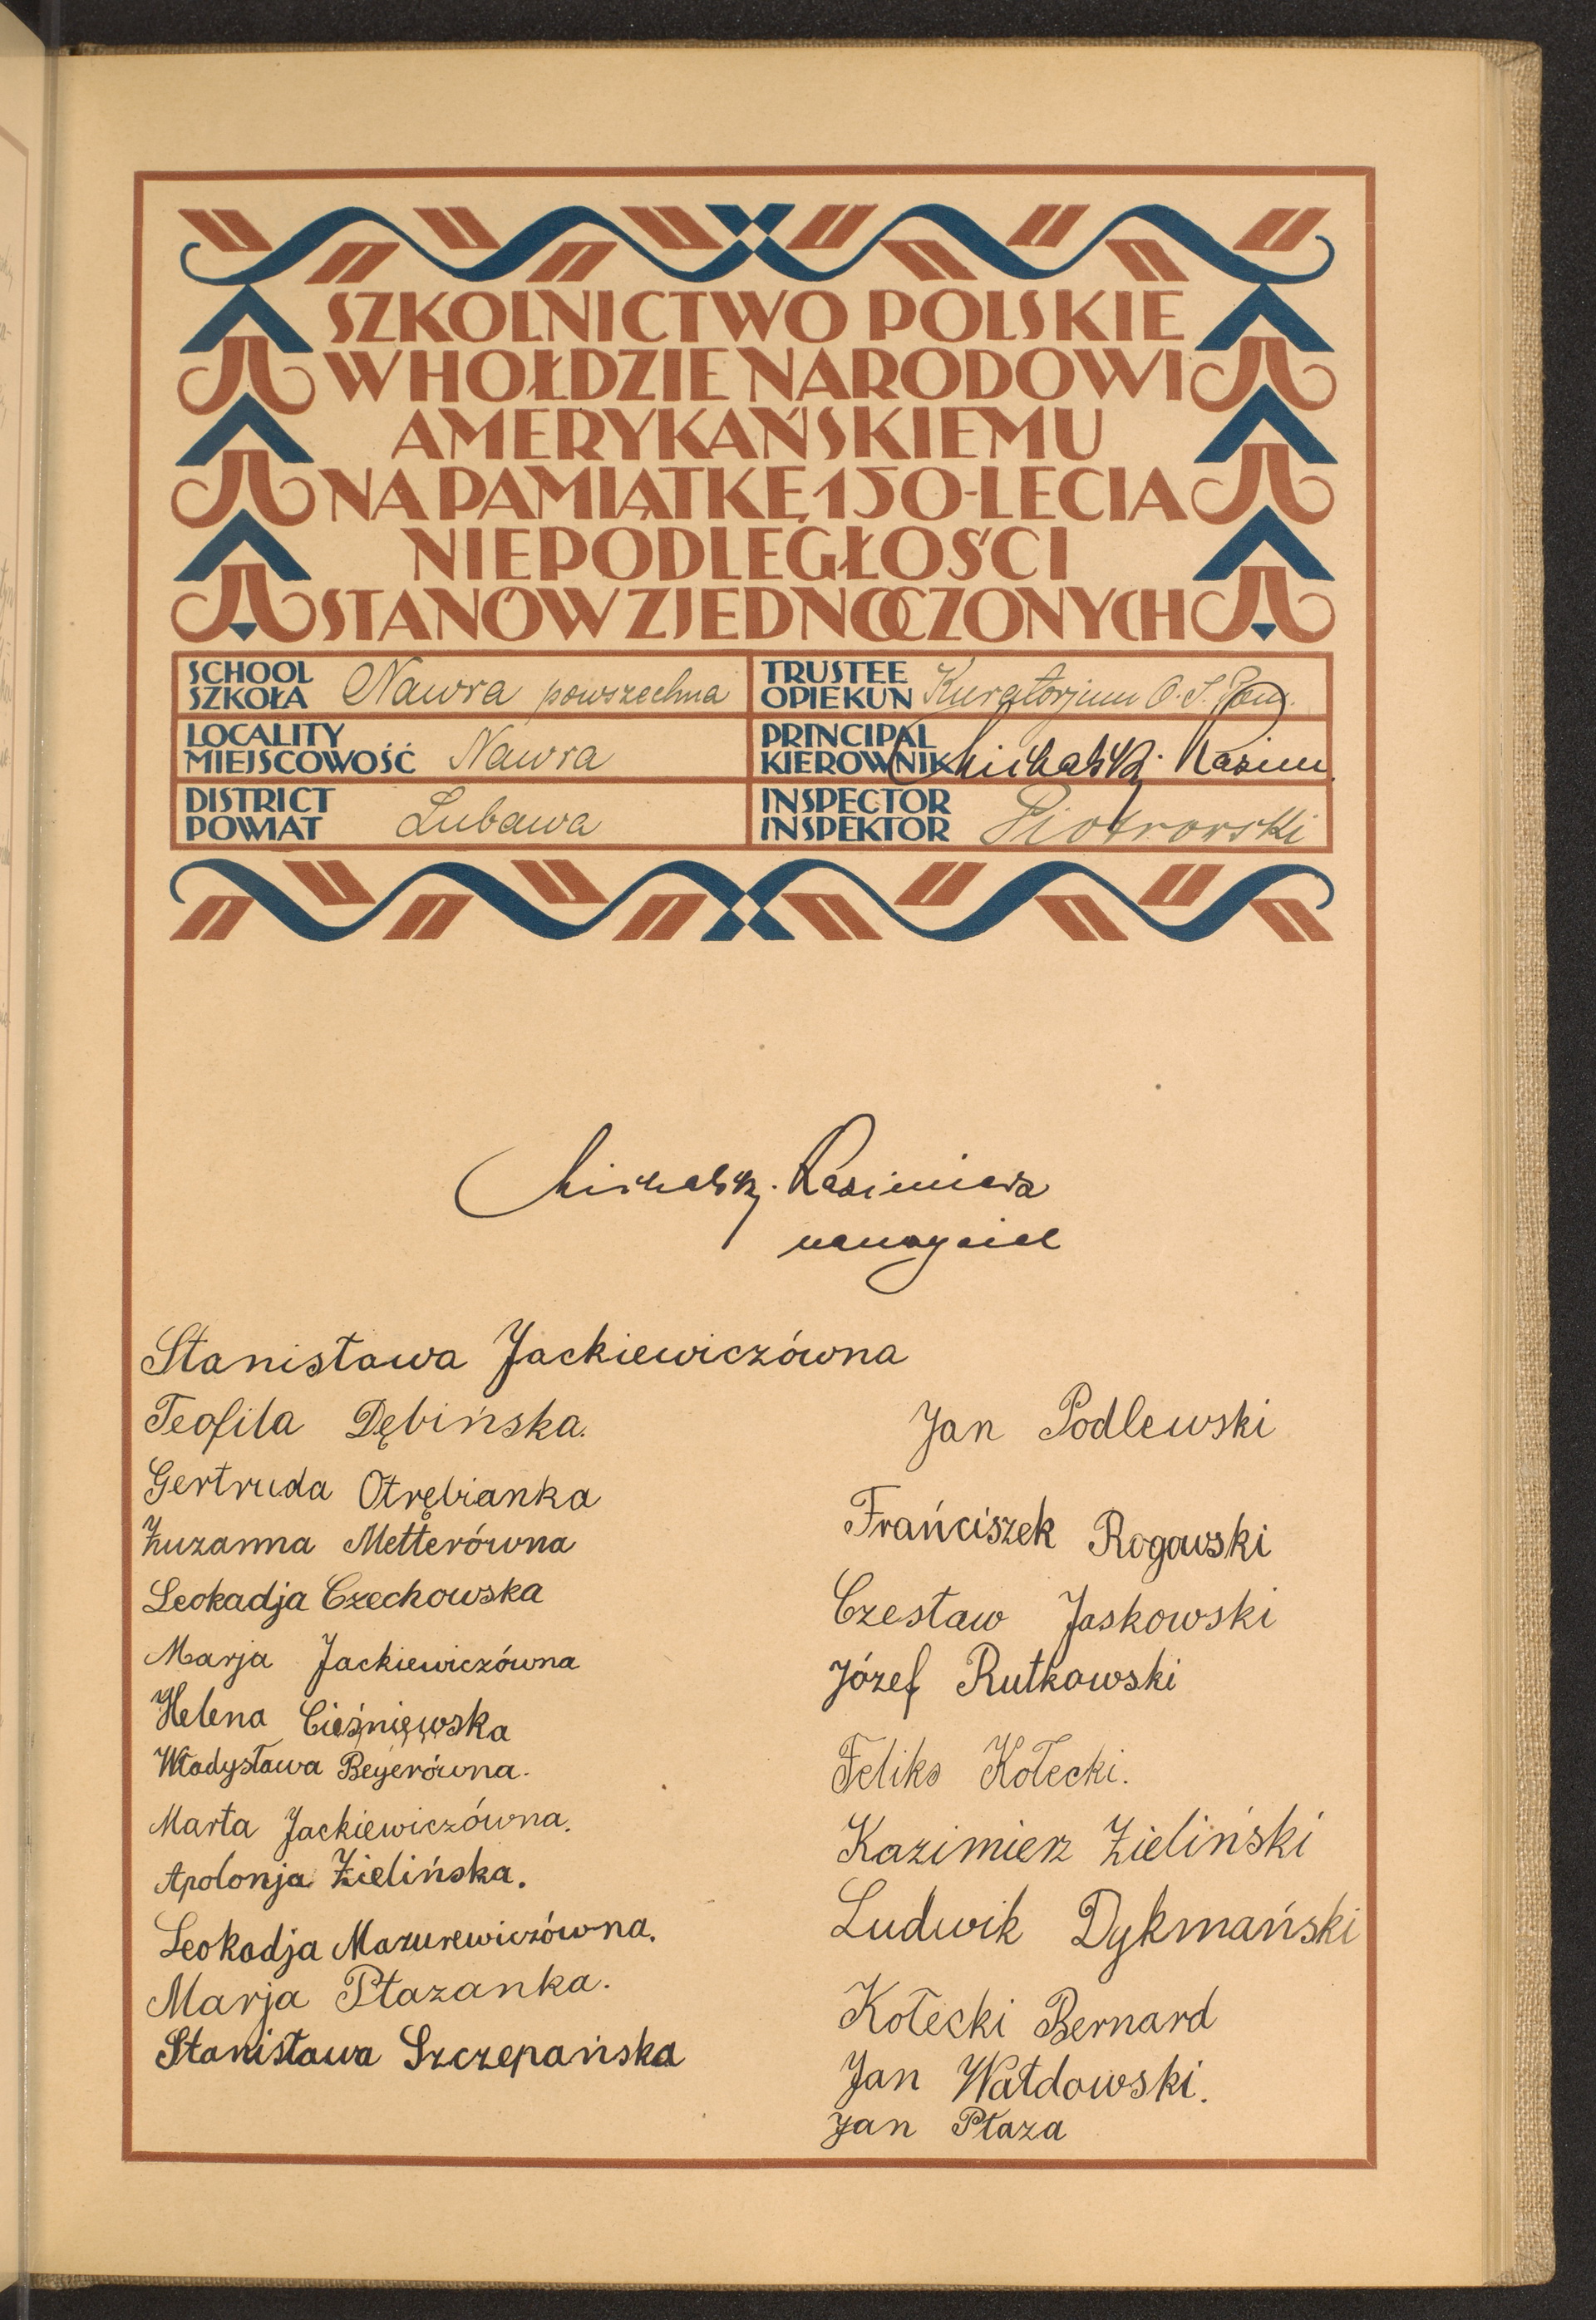 SZKOLNICTWO POLSKIE
W HOŁDZIE NARODOWI
AMERYKAŃSKIEMU
NA PAMIĄTKĘ 150-LECIA
NIEPODLEGŁOŚCI
STANÓW ZJEDNOCZONYCH
SCHOOL
SZKOŁA Nawra powszechna
TRUSTEE
OPIEKUN Kuratorjum O. S. Pom.
LOCALITY
MIEJSCOWOŚĆ Nawra
PRINCIPAL
KIEROWNIK Michalski Kazim.
DISTRICT
POWIAT Lubawa
INSPECTOR
INSPEKTOR Piotrowski
Michalski Kazimierz
nauczyciel
Stanisława Jackiewiczówna
Teofila Dębińska.
Gertruda Otrębianka
Zuzanna Metterówna
Leokadja Czechowska
Marja Jackiewiczówna
Helena Cieśniewska
Władysława Beyerówna.
Marta Jackiewiczówna.
Apolonja Zielińska.
Leokadja Mazurewiczówna.
Marja Płazanka.
Stanisława Szczepańska
Jan Podlewski
Frańciszek Rogowski
Czesław Jaskowski
Józef Rutkowski
Feliks Kołecki.
Kazimierz Zieliński
Ludwik Dykmański
Kołecki Bernard
Jan Wałdowski.
Jan Płaza